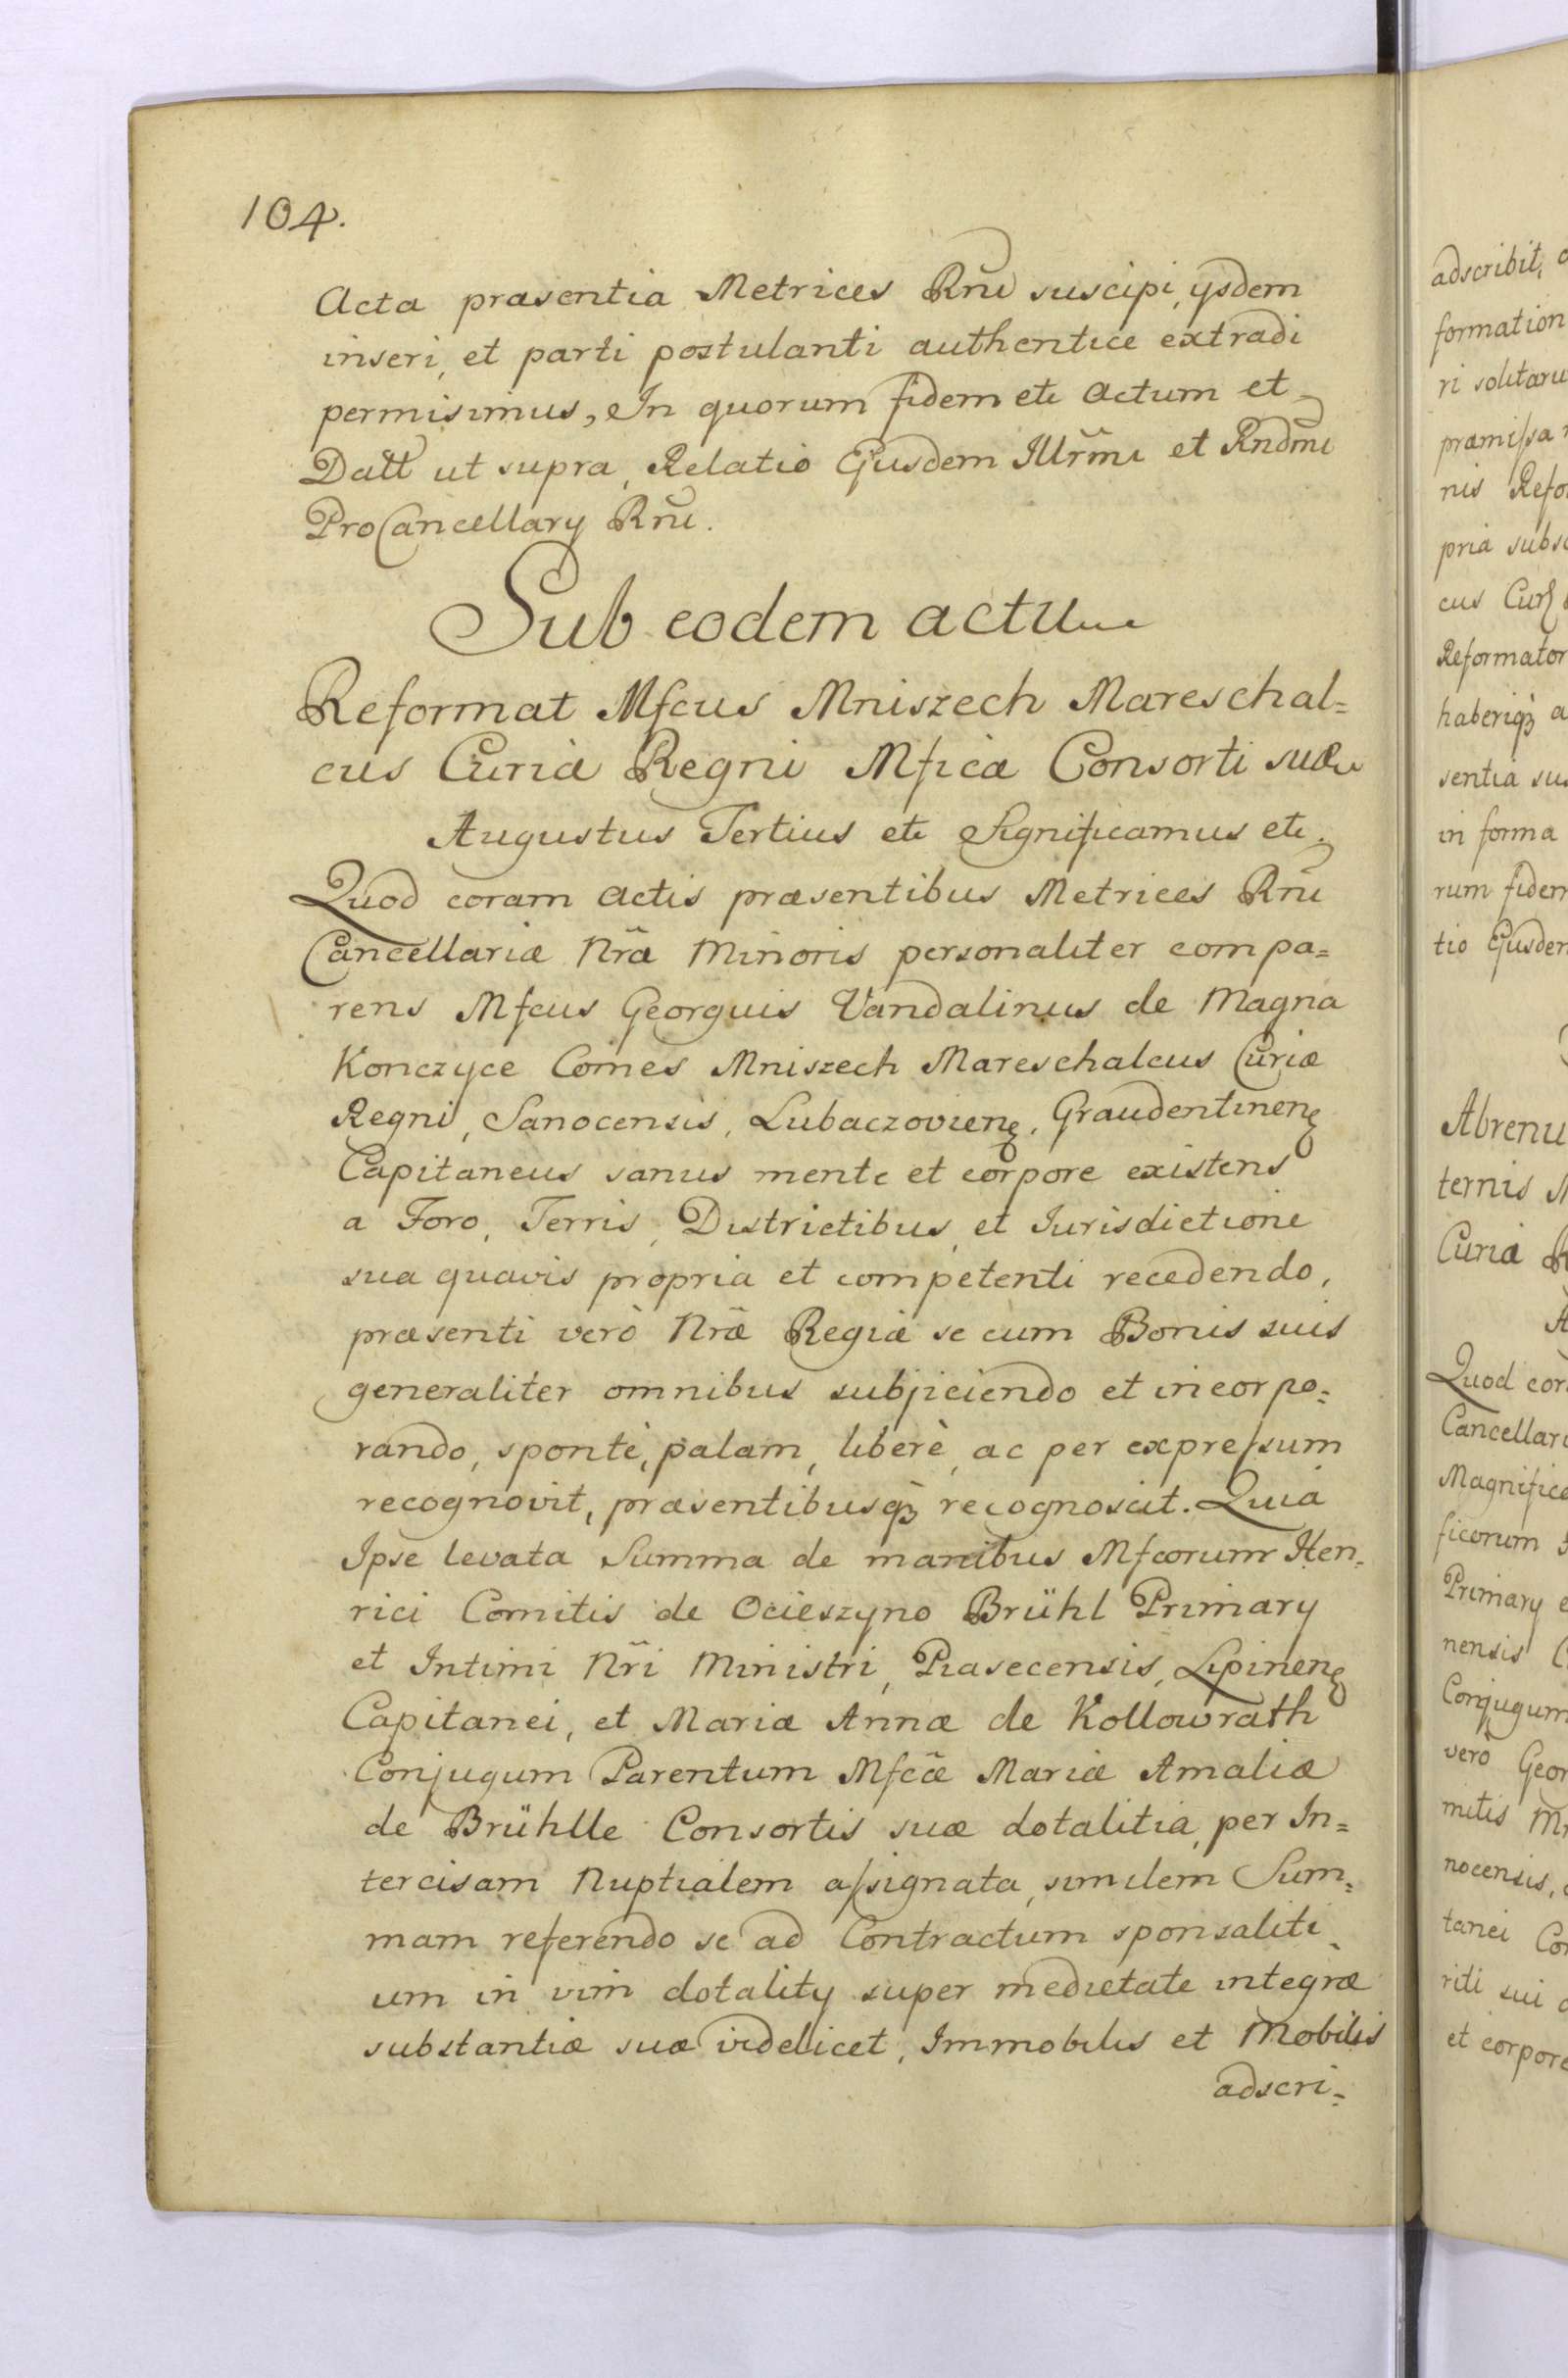 104.
Acta præsentia Metrices Rñi suscipi, ysdem
inseri, et parti postulanti authentice extradi
permisimus, In quorum fidem etc Actum et
Datt ut supra, Relatio Ejusdem Illr̃mi et Rndm̃i
ProCancellary Rñi.
Sub eodem actu
Reformat Mfcus Mniszech Mareschal=
cus Curiæ Regni Mficæ Consorti suæ
Augustus Tertius etc Significamus etc.
Quod coram Actis præsentibus Metrices Rñi
Cancellariæ Nr̃æ Minoris personaliter compa=
rens Mfcus Georguis Vandalinus de Magna
Konczyce Comes Mniszech Mareschalcus Curiæ
Regni, Sanocensis, Lubaczovienȩ, Graudentinenȩ
Capitaneus sanus mente et corpore existens
a Foro, Terris, Districtibus, et Iurisdictione
sua quavis propria et competenti recedendo,
præsenti verò Nr̃æ Regiæ se cum Bonis suis
generaliter omnibus subjiciendo et incorpo=
rando, spontè, palam, liberè, ac per expreſsum
recognovit, præsentibusqꝫ recognoscit. Quia
Ipse levata Summa de manibus Mfcorum Hen=
rici Comitis de Ocieszyno Brühl Primary
et Intimi Nr̃i Ministri, Piasecensis, Lipinenȩ
Capitanei, et Mariæ Annæ de Kollowrath
Conjugum Parentum Mfcæ̃ Mariæ Amaliæ
de Brühlle Consortis suæ dotalitia, per In=
tercisam Nuptialem aſsignata, similem Sum=
mam referendo se ad Contractum sponsaliti=
um in vim dotality super medietate integræ
substantiæ suæ videlicet, Immobilis et Mobilis
adscri=
adscribit,
formation
ri solitaru
præmiſsa
nis Refo
pria subsc
cus Cur
Reformator
haberiqꝫ a
sentia sus
in forma
rum fidem
tio Ejusdem
Abrenu
ternis M
Curiæ R
A
Quod cor
Cancellari
Magnifico
ficorum
Primary e
nensis C
Conjugum
verò Geor
mitis Mn
nocensis,
tanei Co
riti sui
et corpore